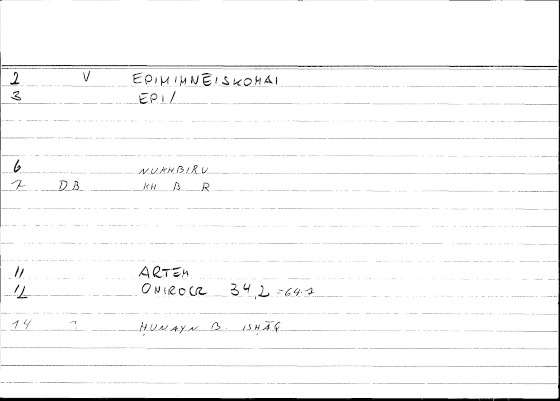 2 V EPIMIMNEISKOMAI
3 EPI/
6 NUKHBIRU
7 D.B. KH B R
11 ARTEM
12 ONIROCR 34,2 = 64.7
14 ? ḤUNAYN B. ISḤĀQ